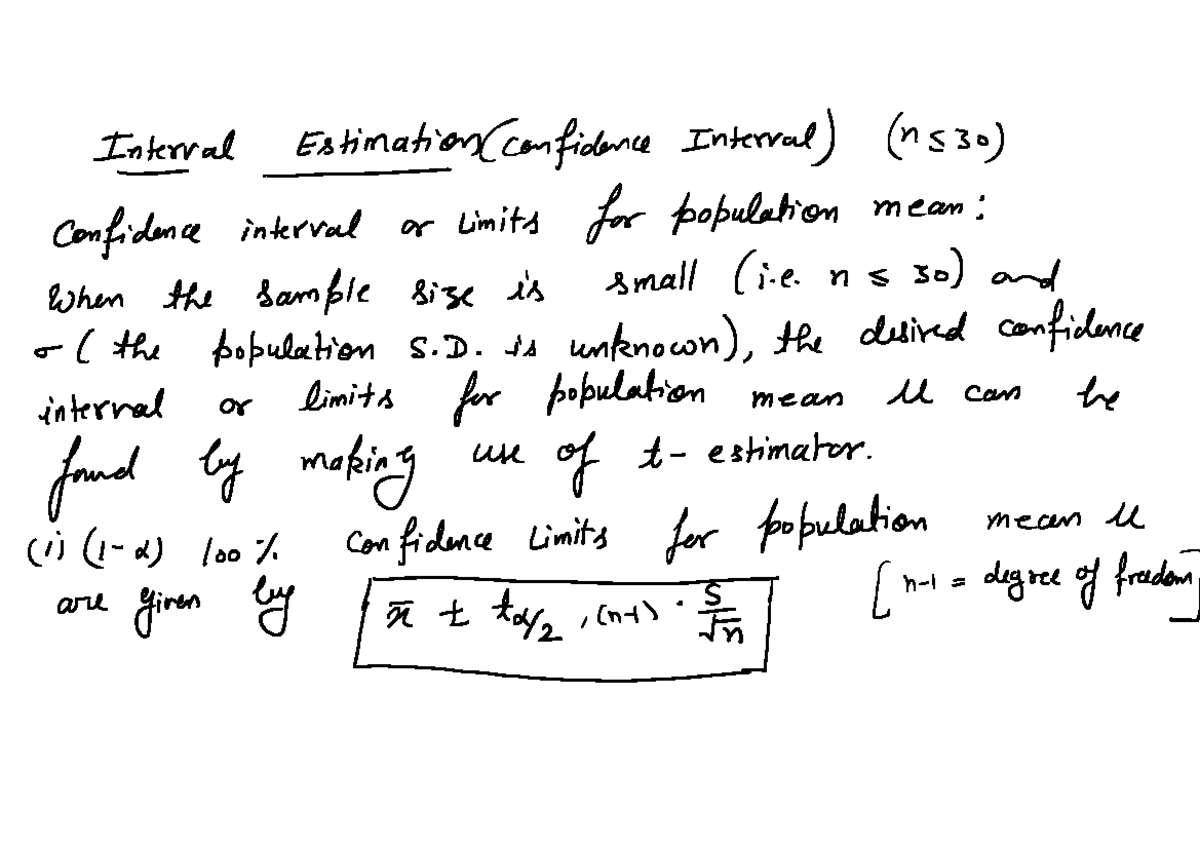 Interval Estimation (Confidence Interval) (n ≤ 30)
Confidence interval or Limits for population mean :
When the sample size is small (i.e. n ≤ 30) and
σ ( the population S.D. is unknown), the desired confidence
interval or limits for population mean μ can be
found by making use of t- estimator.
(i) (1-α) 100 % Confidence Limits for population mean μ
are given by x̄ ± t_{α/2}, (n-1) · S/√n [n-1 = degree of freedom]